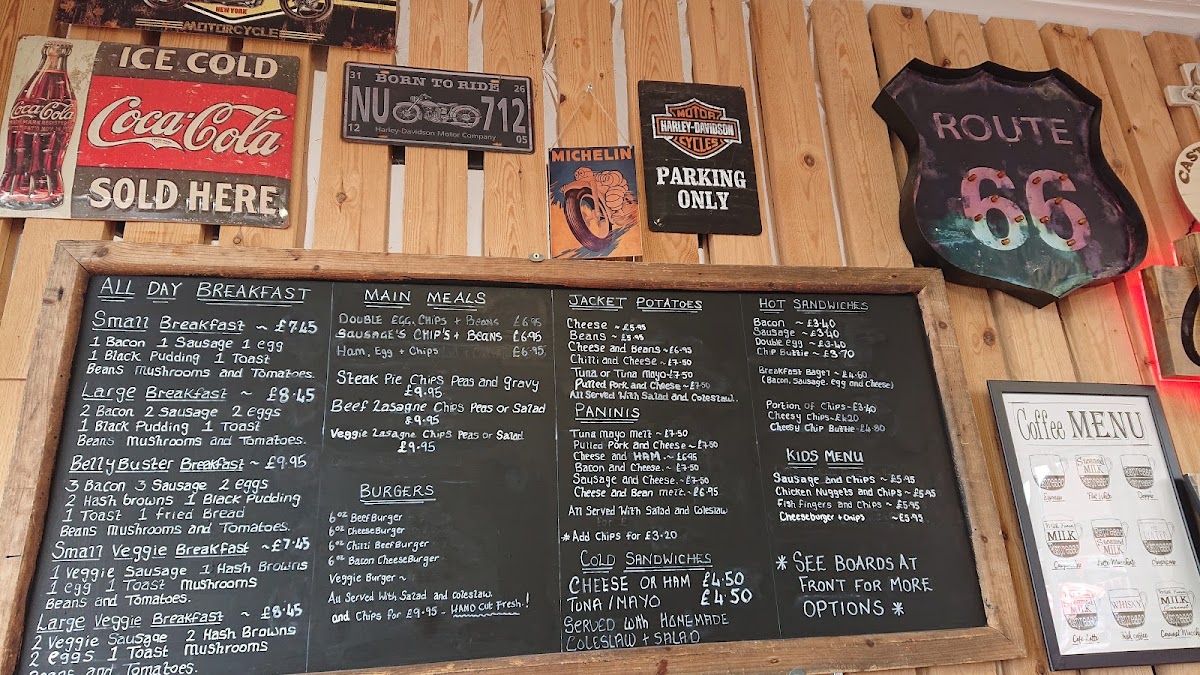 NEW YORK
MOTORCYCLE
ICE COLD
Coca-Cola
Coca-Cola
SOLD HERE
31 BORN TO RIDE 26
NU 712
12 05
Harley-Davidson Motor Company
MICHELIN
MOTOR
HARLEY-DAVIDSON
CYCLES
PARKING
ONLY
ROUTE
66
ALL DAY BREAKFAST
Small Breakfast ~ £7.45
1 Bacon 1 Sausage 1 egg
1 Black Pudding 1 Toast
Beans mushrooms and Tomatoes.
Large Breakfast ~ £8.45
2 Bacon 2 Sausage 2 eggs
1 Black Pudding 1 Toast
Beans mushrooms and Tomatoes.
Belly Buster Breakfast ~ £9.95
3 Bacon 3 Sausage 2 eggs
2 Hash browns 1 Black Pudding
1 Toast 1 fried Bread
Beans mushrooms and Tomatoes.
Small Veggie Breakfast ~ £7.45
1 Veggie Sausage 1 Hash Browns
1 egg 1 Toast mushrooms
Beans and Tomatoes.
Large Veggie Breakfast ~ £8.45
2 Veggie Sausage 2 Hash Browns
2 eggs 1 Toast mushrooms
Beans and Tomatoes.
MAIN MEALS
DOUBLE EGG, CHIPS + BEANS £6.95
SAUSAGE'S CHIP'S + BEANS £6.95
Ham, Egg + Chips £6.95
Steak Pie Chips Peas and gravy
£9.95
Beef Lasagne Chips Peas or Salad
£9.95
Veggie Lasagne Chips Peas or Salad.
£9.95
BURGERS
6oz Beef Burger
6oz Cheese Burger
6oz Chilli Beef Burger
6oz Bacon Cheese Burger
Veggie Burger ~
All Served With Salad and coleslaw.
and Chips for £9.95 - HAND Cut Fresh!
JACKET POTATOES
Cheese ~ £5.95
Beans ~ £5.95
Cheese and Beans ~ £6.95
Chilli and Cheese ~ £7.50
Tuna or Tuna Mayo £7.50
Pulled Pork and Cheese ~ £7.50
All Served With Salad and Coleslaw.
PANINIS
Tuna Mayo melt ~ £7.50
Pulled Pork and Cheese ~ £7.50
Cheese and HAM ~ £6.95
Bacon and Cheese. ~ £7.50
Sausage and Cheese. ~ £7.50
Cheese and Bean melt. ~ £6.95
All Served With Salad and Coleslaw
* Add Chips for £3.20
COLD SANDWICHES
CHEESE OR HAM £4.50
TUNA/MAYO £4.50
SERVED with HOMEMADE
COLESLAW + SALAD
HOT SANDWICHES
Bacon ~ £3.40
Sausage ~ £3.40
Double Egg ~ £3.40
Chip Buttie ~ £3.70
Breakfast Bagel ~ £4.60
(Bacon, Sausage, egg and Cheese)
Portion of Chips - £3.40
Cheesy Chips ~ £4.20
Cheesy Chip Buttie - £4.80
KIDS MENU
Sausage and Chips ~ £5.95
Chicken Nuggets and Chips ~ £5.95
fish Fingers and Chips ~ £5.95
Cheeseburger + chips ~ £5.95
* SEE BOARDS AT
FRONT FOR MORE
OPTIONS *
CAST
Coffee MENU
MILK
espresso
Flat White
MILK
espresso
MILK
espresso
WHISKY
MILK
Cafe Latte
Irish coffee